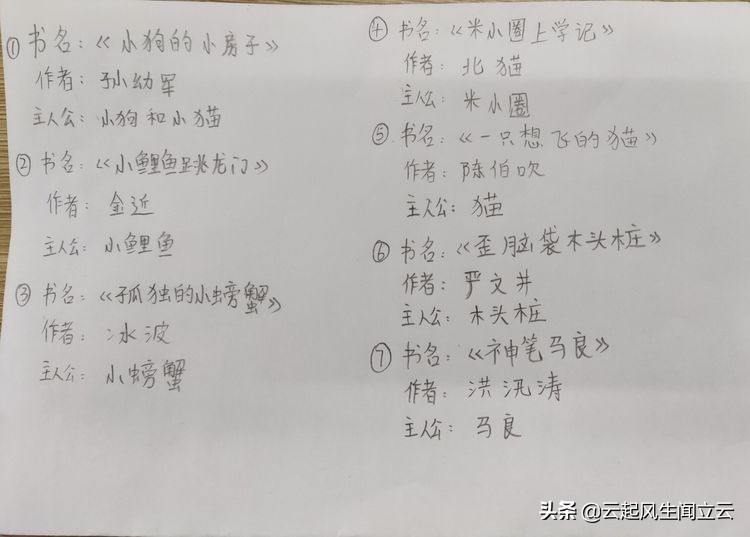 ① 书名：《小狗的小房子》
作者：孙幼军
主人公：小狗和小猫
② 书名：《小鲤鱼跳龙门》
作者：金近
主人公：小鲤鱼
③ 书名：《孤独的小螃蟹》
作者：冰波
主人公：小螃蟹
④ 书名：《米小圈上学记》
作者：北猫
主人公：米小圈
⑤ 书名：《一只想飞的猫》
作者：陈伯吹
主人公：猫
⑥ 书名：《歪脑袋木头桩》
作者：严文井
主人公：木头桩
⑦ 书名：《神笔马良》
作者：洪汛涛
主人公：马良
头条 @云起风生闻立云